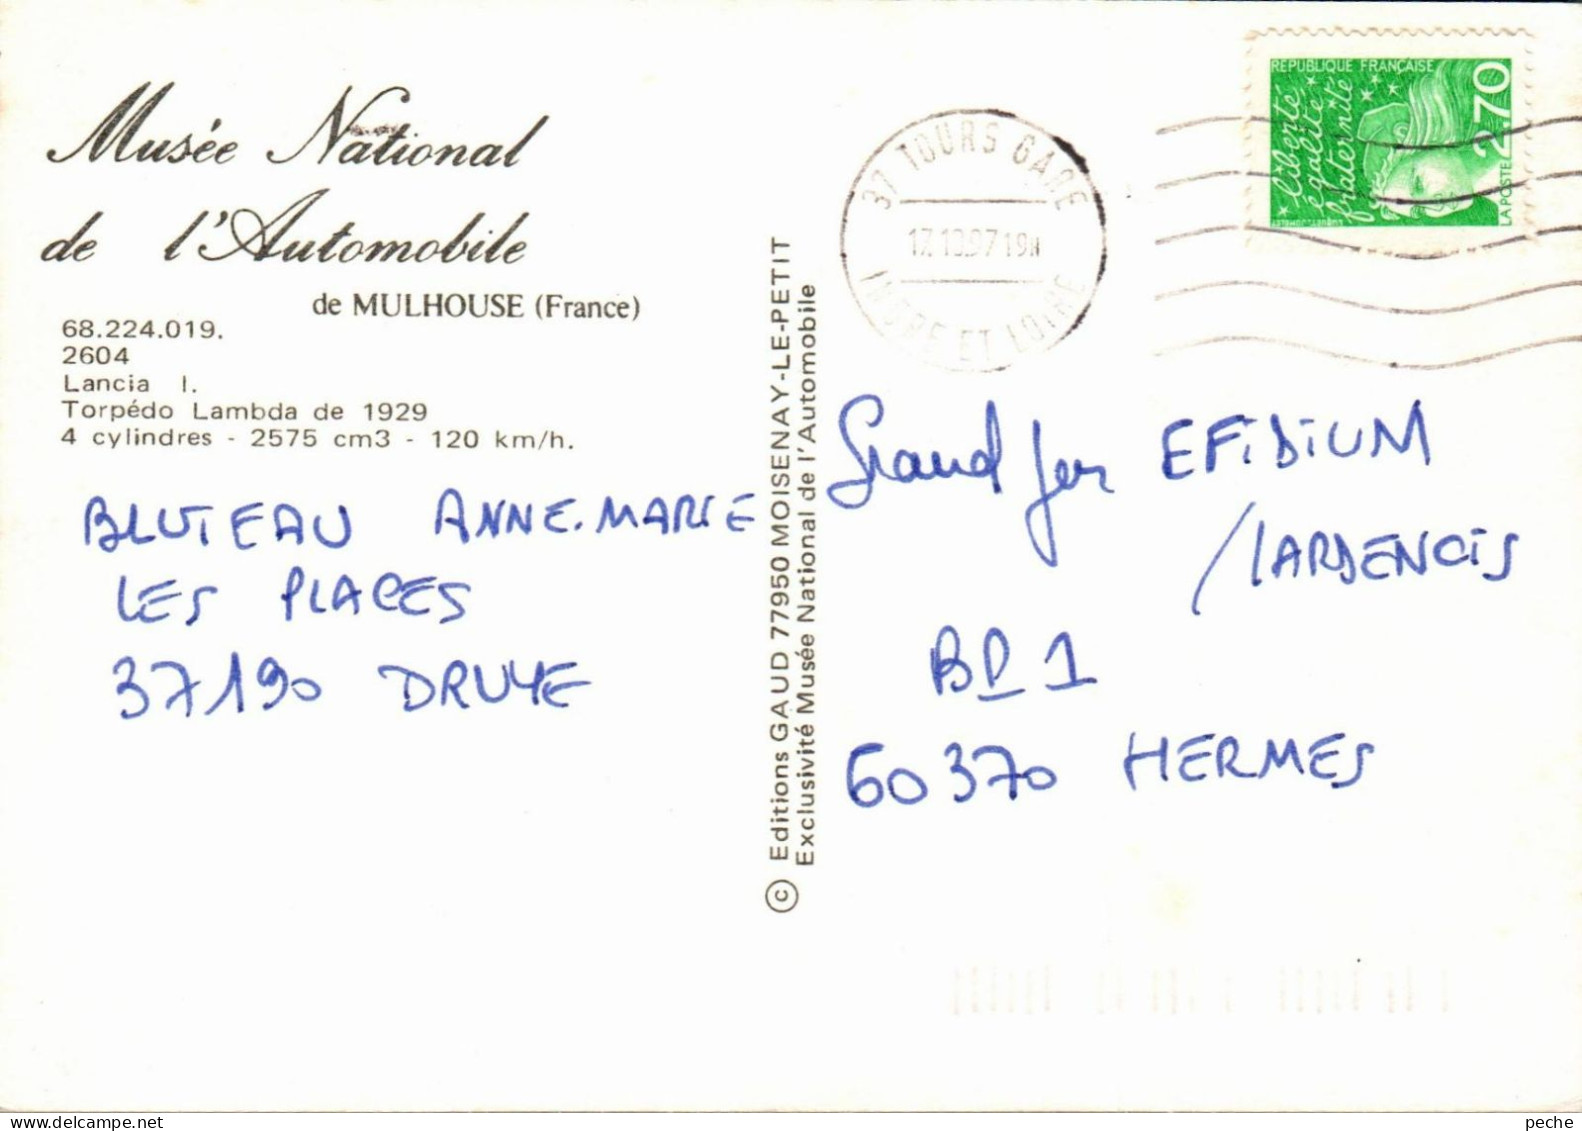 Musée National
de l'Automobile
de MULHOUSE (France)
68.224.019.
2604
Lancia I.
Torpédo Lambda de 1929
4 cylindres - 2575 cm3 - 120 km/h.
BLUTEAU ANNE.MARIE
LES PLACES
37190 DRUYE
© Editions GAUD 77950 MOISENAY-LE-PETIT
Exclusivité Musée National de l'Automobile
37 TOURS GARE
17.10.97 19H
INDRE ET LOIRE
REPUBLIQUE FRANÇAISE
liberté
égalité
fraternité
2,70
LA POSTE
Grand jeu EFIDIUM
/LARDENOIS
BP 1
60370 HERMES
peche